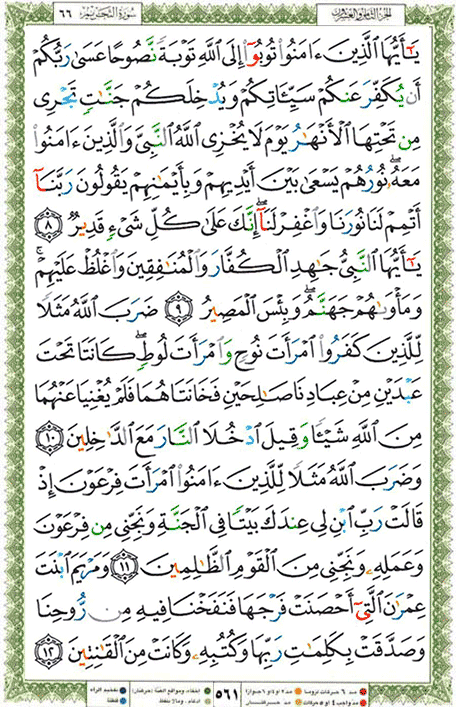 الجزء الثامن والعشرون
سورة التحريم ٦٦
يَـٰٓأَيُّهَا ٱلَّذِينَ ءَامَنُوا۟ تُوبُوٓا۟ إِلَى ٱللَّهِ تَوْبَةً نَّصُوحًا عَسَىٰ رَبُّكُمْ
أَن يُكَفِّرَ عَنكُمْ سَيِّـَٔاتِكُمْ وَيُدْخِلَكُمْ جَنَّـٰتٍ تَجْرِى
مِن تَحْتِهَا ٱلْأَنْهَـٰرُ يَوْمَ لَا يُخْزِى ٱللَّهُ ٱلنَّبِىَّ وَٱلَّذِينَ ءَامَنُوا۟
مَعَهُۥ ۖ نُورُهُمْ يَسْعَىٰ بَيْنَ أَيْدِيهِمْ وَبِأَيْمَـٰنِهِمْ يَقُولُونَ رَبَّنَآ
أَتْمِمْ لَنَا نُورَنَا وَٱغْفِرْ لَنَآ ۖ إِنَّكَ عَلَىٰ كُلِّ شَىْءٍ قَدِيرٌ ٨
يَـٰٓأَيُّهَا ٱلنَّبِىُّ جَـٰهِدِ ٱلْكُفَّارَ وَٱلْمُنَـٰفِقِينَ وَٱغْلُظْ عَلَيْهِمْ ۚ
وَمَأْوَىٰهُمْ جَهَنَّمُ ۖ وَبِئْسَ ٱلْمَصِيرُ ٩ ضَرَبَ ٱللَّهُ مَثَلًا
لِّلَّذِينَ كَفَرُوا۟ ٱمْرَأَتَ نُوحٍ وَٱمْرَأَتَ لُوطٍ ۖ كَانَتَا تَحْتَ
عَبْدَيْنِ مِنْ عِبَادِنَا صَـٰلِحَيْنِ فَخَانَتَاهُمَا فَلَمْ يُغْنِيَا عَنْهُمَا
مِنَ ٱللَّهِ شَيْـًٔا وَقِيلَ ٱدْخُلَا ٱلنَّارَ مَعَ ٱلدَّٰخِلِينَ ١٠
وَضَرَبَ ٱللَّهُ مَثَلًا لِّلَّذِينَ ءَامَنُوا۟ ٱمْرَأَتَ فِرْعَوْنَ إِذْ
قَالَتْ رَبِّ ٱبْنِ لِى عِندَكَ بَيْتًا فِى ٱلْجَنَّةِ وَنَجِّنِى مِن فِرْعَوْنَ
وَعَمَلِهِۦ وَنَجِّنِى مِنَ ٱلْقَوْمِ ٱلظَّـٰلِمِينَ ١١ وَمَرْيَمَ ٱبْنَتَ
عِمْرَٰنَ ٱلَّتِىٓ أَحْصَنَتْ فَرْجَهَا فَنَفَخْنَا فِيهِ مِن رُّوحِنَا
وَصَدَّقَتْ بِكَلِمَـٰتِ رَبِّهَا وَكُتُبِهِۦ وَكَانَتْ مِنَ ٱلْقَـٰنِتِينَ ١٢
٥٦١